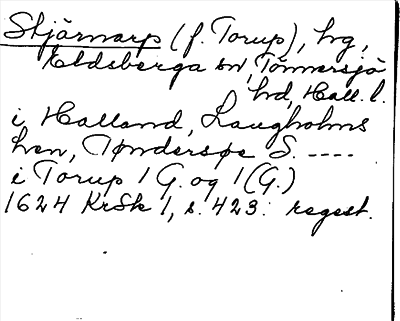 Stjärnarp (f. Torup), hg,
Eldsberga sn, Tönnersjö
hd, Hall. l.
i Halland, Laugholms
len, Tøndersøe S. ----
i Torup 1 G. og 1 (G.)
1624 KrSk 1, s. 423: regest.